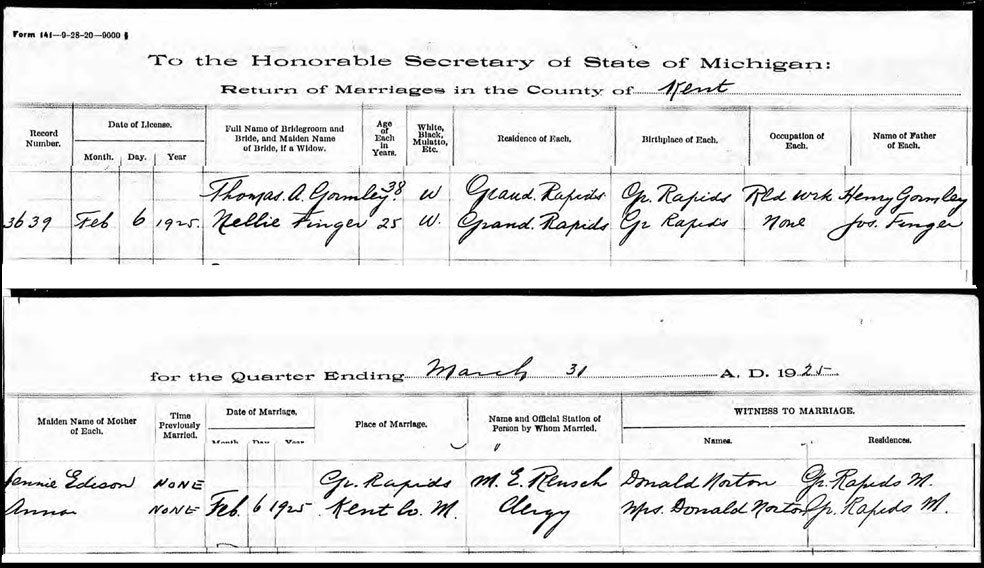 Form 141—9-28-20—9000
To the Honorable Secretary of State of Michigan:
Return of Marriages in the County of Kent
Record Number.
Date of License.
Month. Day. Year
Full Name of Bridegroom and Bride, and Maiden Name of Bride, if a Widow.
Age of Each in Years.
White, Black, Mulatto, Etc.
Residence of Each.
Birthplace of Each.
Occupation of Each.
Name of Father of Each.
Thomas. A. Gormley. 38 W Grand. Rapids Gr. Rapids Rld Wrk Henry Gormley
3639 Feb 6 1925. Nellie Finger 25 W. Grand. Rapids Gr Rapids None Jos. Finger
for the Quarter Ending March 31 A. D. 1925
Maiden Name of Mother of Each.
Time Previously Married.
Date of Marriage.
Month Day Year
Place of Marriage.
Name and Official Station of Person by Whom Married.
WITNESS TO MARRIAGE.
Names. Residences.
Jennie Edison NONE Gr. Rapids M. E. Reusch Donald Norton Gr. Rapids M.
Anna NONE Feb. 6 1925 Kent Co. M. Clergy Mrs. Donald Norton Gr. Rapids M.